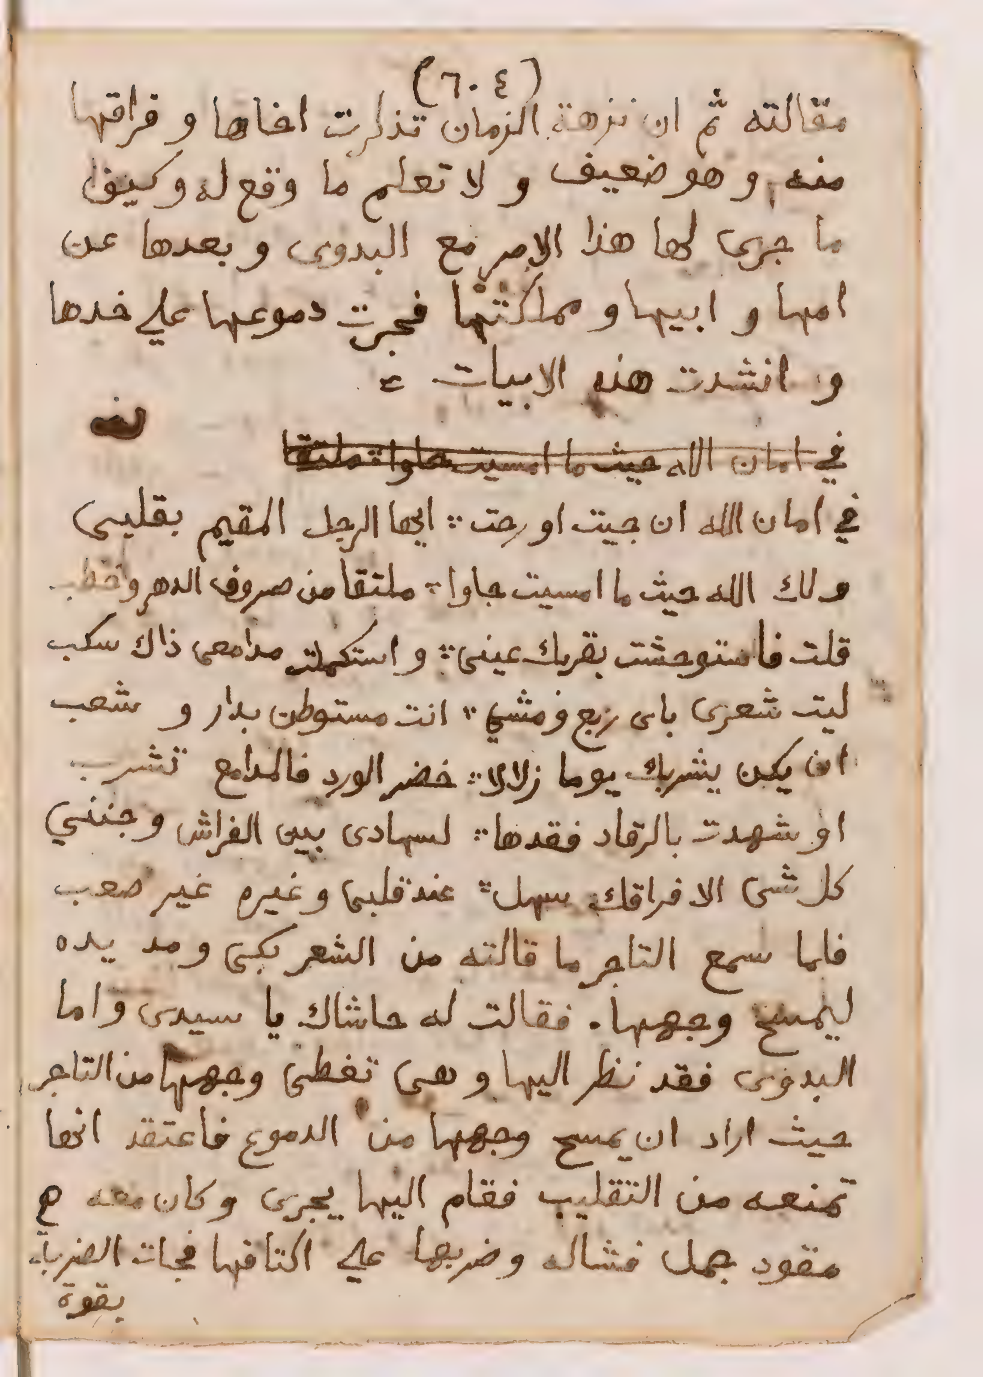 (٦٠٤)
مقالته ثم ان نزهة الزمان تذكرت اخاها و فراقها
منه و هو ضعيف و لا تعلم ما وقع له وكيف
ما جرى لها هذا الامر مع البدوى و بعدها عن
امها و ابيها و مملكتها فجرت دموعها على خدها
و انشدت هذه الابيات
في امان الله حيث ما امسيت حلوا ملتقا
في امان الله ان جيت او رحت ∴ ايها الرجل المقيم بقلبى
و لك الله حيث ما امسيت جاوا ∴ ملتقا من صروف الدهر وخطب
قلت فاستوحشت بقربك عينى ∴ و استكملت مدامعى ذاك سكب
ليت شعرى باى ربع ومشي ∴ انت مستوطن بدار و شعب
ان يكن يشربك يوما زلالا ∴ خضر الورد فالمدامع تشرب
او شهدت بالرقاد فقدها ∴ لسهادى بين الفراش وجنبي
كل شى الا فراقك سهل ∴ عند قلبى وغيره غير صعب
فلما سمع التاجر ما قالته من الشعر بكى ومد يده
ليمسح وجهها. فقالت له حاشاك يا سيدى واما
البدوى فقد نظر اليها و هى تغطى وجهها من التاجر
حيث اراد ان يمسح وجهها من الدموع فاعتقد انها
تمنعه من التقليب فقام اليها يجرى وكان معه
مقود جمل فشاله وضربها على اكتافها فجات الضربة
بقوة